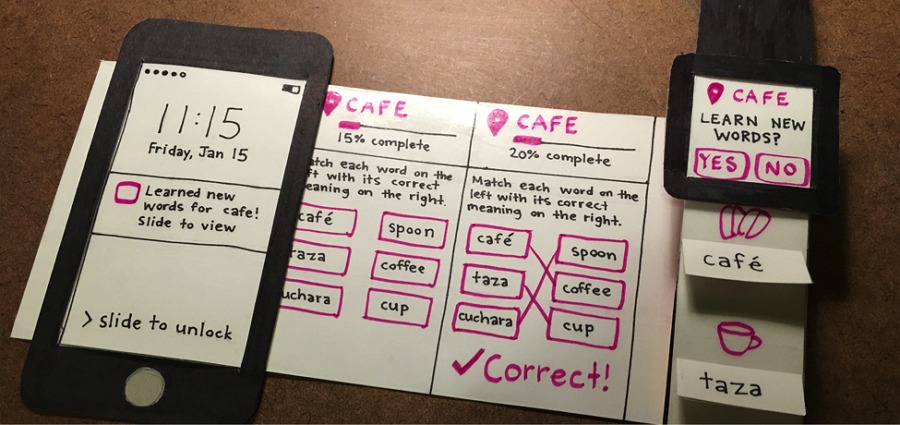 11:15
Friday, Jan 15
Learned new
words for cafe!
Slide to view
> slide to unlock
CAFE
15% complete
atch each word on the
ft with its correct
eaning on the right.
café
spoon
taza
coffee
uchara
cup
CAFE
20% complete
Match each word on the
left with its correct
meaning on the right.
café
spoon
taza
coffee
cuchara
cup
✓Correct!
CAFE
LEARN NEW
WORDS?
YES NO
café
taza